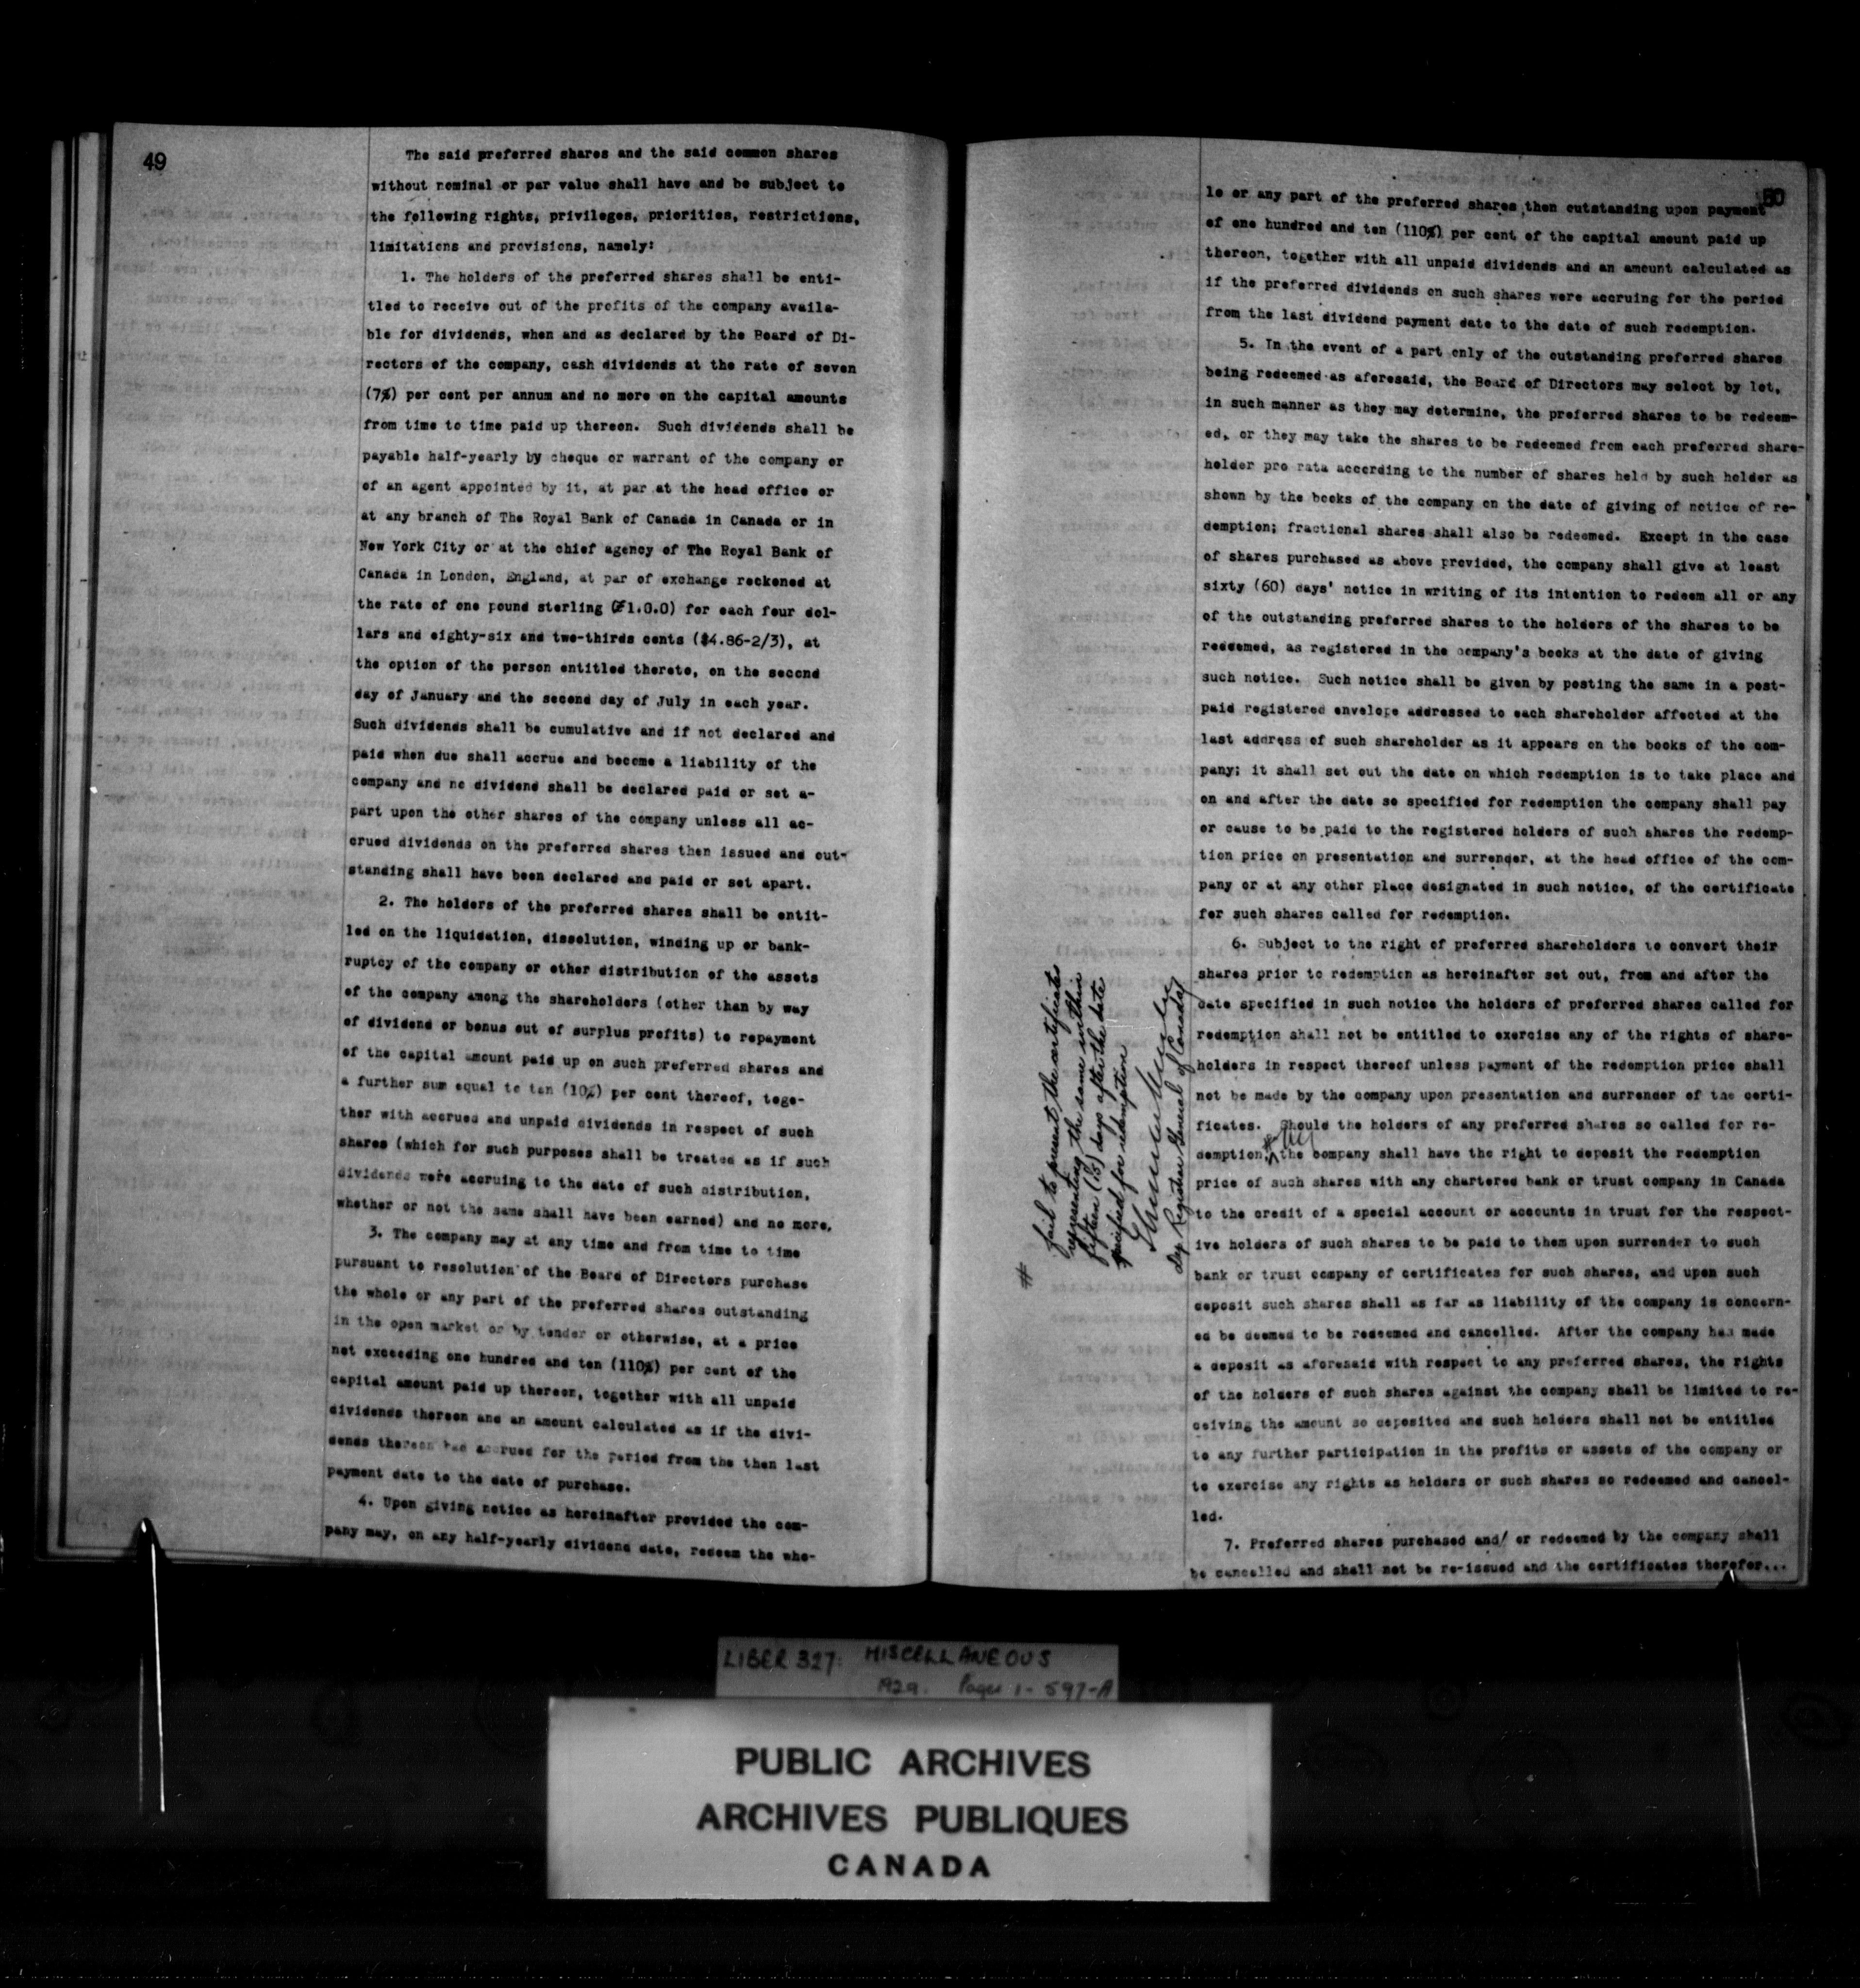 49
The said preferred shares and the said common shares
without nominal or par value shall have and be subject to
the following rights, privileges, priorities, restrictions,
limitations and provisions, namely:
1. The holders of the preferred shares shall be enti-
tled to receive out of the profits of the company availa-
ble for dividends, when and as declared by the Board of Di-
rectors of the company, cash dividends at the rate of seven
(7%) per cent per annum and no more on the capital amounts
from time to time paid up thereon. Such dividends shall be
payable half-yearly by cheque or warrant of the company or
of an agent appointed by it, at par at the head office or
at any branch of The Royal Bank of Canada in Canada or in
New York City or at the chief agency of The Royal Bank of
Canada in London, England, at par of exchange reckoned at
the rate of one pound sterling (£1.0.0) for each four dol-
lars and eighty-six and two-thirds cents ($4.86-2/3), at
the option of the person entitled thereto, on the second
day of January and the second day of July in each year.
Such dividends shall be cumulative and if not declared and
paid when due shall accrue and become a liability of the
company and no dividend shall be declared paid or set a-
part upon the other shares of the company unless all ac-
crued dividends on the preferred shares then issued and out-
standing shall have been declared and paid or set apart.
2. The holders of the preferred shares shall be entit-
led on the liquidation, dissolution, winding up or bank-
ruptcy of the company or other distribution of the assets
of the company among the shareholders (other than by way
of dividend or bonus out of surplus profits) to repayment
of the capital amount paid up on such preferred shares and
a further sum equal to ten (10%) per cent thereof, toge-
ther with accrued and unpaid dividends in respect of such
shares (which for such purposes shall be treated as if such
dividends were accruing to the date of such distribution,
whether or not the same shall have been earned) and no more.
3. The company may at any time and from time to time
pursuant to resolution of the Board of Directors purchase
the whole or any part of the preferred shares outstanding
in the open market or by tender or otherwise, at a price
not exceeding one hundred and ten (110%) per cent of the
capital amount paid up thereon, together with all unpaid
dividends thereon and an amount calculated as if the divi-
dends thereon had accrued for the period from the then last
payment date to the date of purchase.
4. Upon giving notice as hereinafter provided the com-
pany may, on any half-yearly dividend date, redeem the who-
50
le or any part of the preferred shares then outstanding upon payment
of one hundred and ten (110%) per cent of the capital amount paid up
thereon, together with all unpaid dividends and an amount calculated as
if the preferred dividends on such shares were accruing for the period
from the last dividend payment date to the date of such redemption.
5. In the event of a part only of the outstanding preferred shares
being redeemed as aforesaid, the Board of Directors may select by lot,
in such manner as they may determine, the preferred shares to be redeem-
ed, or they may take the shares to be redeemed from each preferred share-
holder pro rata according to the number of shares held by such holder as
shown by the books of the company on the date of giving of notice of re-
demption; fractional shares shall also be redeemed. Except in the case
of shares purchased as above provided, the company shall give at least
sixty (60) days' notice in writing of its intention to redeem all or any
of the outstanding preferred shares to the holders of the shares to be
redeemed, as registered in the company's books at the date of giving
such notice. Such notice shall be given by posting the same in a post-
paid registered envelope addressed to each shareholder affected at the
last address of such shareholder as it appears on the books of the com-
pany; it shall set out the date on which redemption is to take place and
on and after the date so specified for redemption the company shall pay
or cause to be paid to the registered holders of such shares the redemp-
tion price on presentation and surrender, at the head office of the com-
pany or at any other place designated in such notice, of the certificate
for such shares called for redemption.
6. Subject to the right of preferred shareholders to convert their
shares prior to redemption as hereinafter set out, from and after the
date specified in such notice the holders of preferred shares called for
redemption shall not be entitled to exercise any of the rights of share-
holders in respect thereof unless payment of the redemption price shall
not be made by the company upon presentation and surrender of the certi-
ficates. Should the holders of any preferred shares so called for re-
demption # the company shall have the right to deposit the redemption
price of such shares with any chartered bank or trust company in Canada
to the credit of a special account or accounts in trust for the respect-
ive holders of such shares to be paid to them upon surrender to such
bank or trust company of certificates for such shares, and upon such
deposit such shares shall as far as liability of the company is concern-
ed be deemed to be redeemed and cancelled. After the company has made
a deposit as aforesaid with respect to any preferred shares, the rights
of the holders of such shares against the company shall be limited to re-
ceiving the amount so deposited and such holders shall not be entitled
to any further participation in the profits or assets of the company or
to exercise any rights as holders or such shares so redeemed and cancel-
led.
7. Preferred shares purchased and/ or redeemed by the company shall
be cancelled and shall not be re-issued and the certificates therefor...
#
fail to present the certificates
representing the same within
fifteen (15) days after the date
specified for redemption
Dep Registrar General of Canada
LIBER 327: MISCELLANEOUS
1929. Pages 1-597-A
PUBLIC ARCHIVES
ARCHIVES PUBLIQUES
CANADA